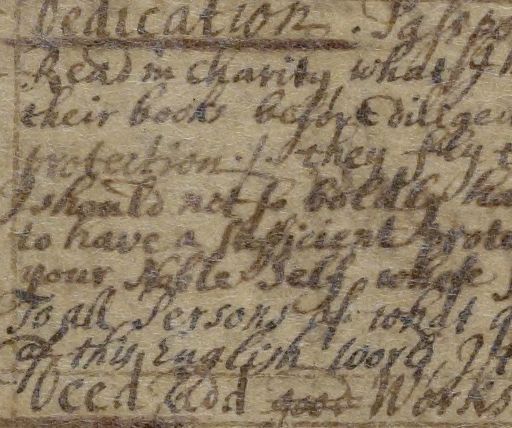 Dedication.
Read in charity, what
their books before dilligen
protection. they fly t
I should not so boldly ha
to have a sufficient prote
your Noble Self whose
To all Persons of what q
of this English word, I
Used God good Works